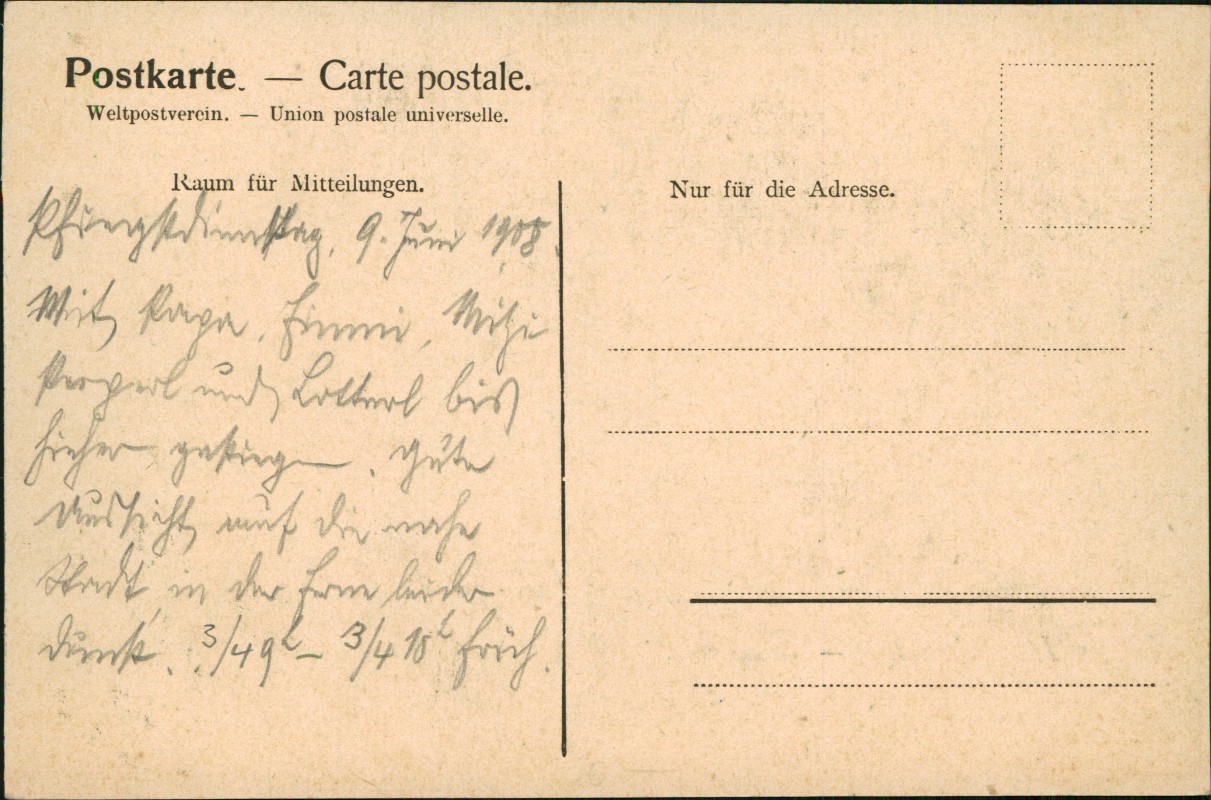 Postkarte. — Carte postale.
Weltpostverein. — Union postale universelle.
Raum für Mitteilungen.
Nur für die Adresse.
Pfingstdienstag, 9. Juni 1908.
Mit Papa, Emmi, Mitzi
und Lotterl bis
hieher gestiegen. Gute
Aussicht auf die nahe
Stadt, in der Ferne leider
Dunst. 3/4 9 h – 3/4 10 h früh.